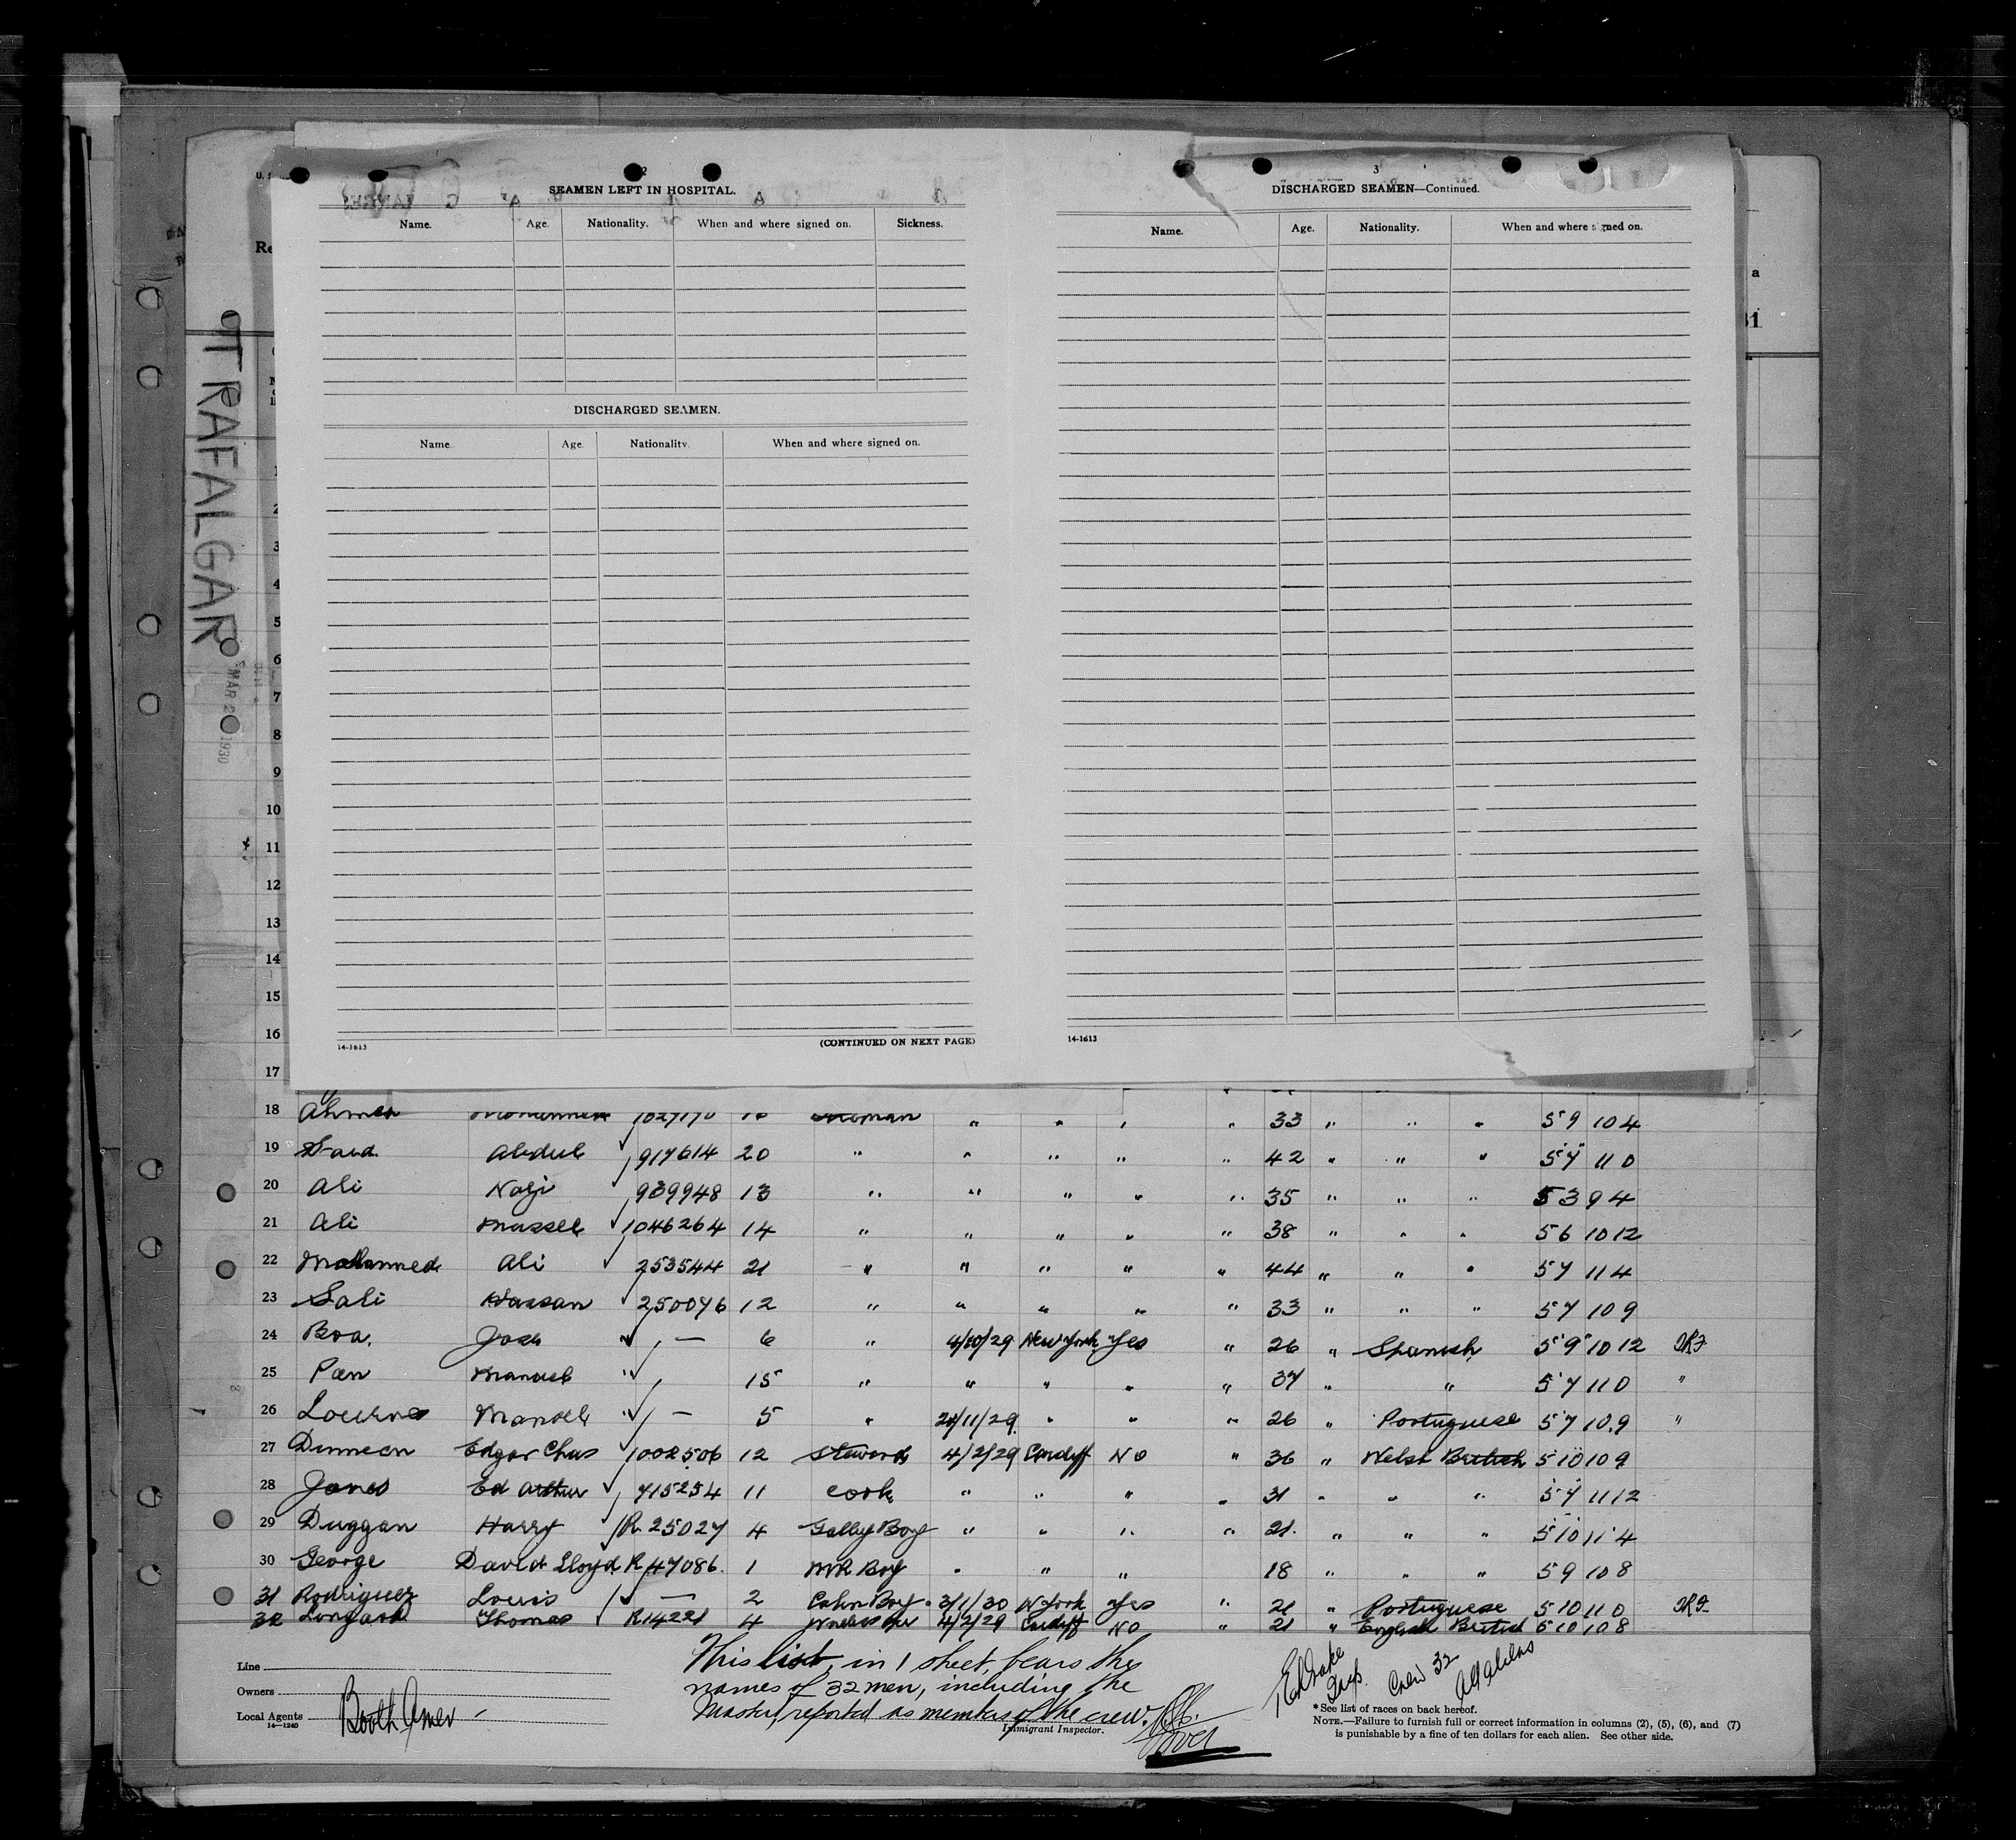 TRAFALGAR
MAR 2 1930
2
SEAMEN LEFT IN HOSPITAL.
Name. Age. Nationality. When and where signed on. Sickness.
DISCHARGED SEAMEN.
Name. Age. Nationality. When and where signed on.
14-1613
(CONTINUED ON NEXT PAGE)
3
DISCHARGED SEAMEN—Continued.
Name. Age. Nationality. When and where signed on.
14-1613
1
2
3
4
5
6
7
8
9
10
11
12
13
14
15
16
17
18 Ahmed " " " " 33 " " " 5 9 104
19 Said Abdul 917614 20 " " " " " 42 " " " 5 7 110
20 Ali Nagi 939948 13 " " " " " 35 " " " 5 3 94
21 Ali 1046264 14 " " " " " 38 " " " 5 6 10 12
22 Mohammed Ali 253544 21 " " " " " 44 " " " 5 7 114
23 Sali Hassan 250076 12 " " " " " 33 " " " 5 7 109
24 Boa. Jose — 6 " 4/10/29 New York Yes " 26 " Spanish 5 9 10 12
25 Pan Manuel 15 " " " " " 37 " " 5 7 110 "
26 Manoel — 5 " /11/29 " " " 26 " Portuguese 5 7 10.9 "
27 Edgar Chas 1002506 12 Steward 4/2/29 Cardiff No " 36 " Welsh British 5 10 109
28 Jones Ed Arthur 715254 11 cook " " " " 31 " " " 5 7 11 12
29 Duggan Harry R. 25027 4 Galley Boy " " " " 21. " " " 5 10 11 4
30 George David Lloyd R 47086. 1 MR Boy " " " 18 " " " 5 9 108
31 Rodriguez Louis — 2 Cabin Boy 3/1/30 N York Yes " 21 " Portuguese 5 10 110
32 Thomas R14221 4 4/2/29 Cardiff No " 21 " English British 5 10 108
Line
Owners
Local Agents Booth Amer
14—1240
This list, in 1 sheet, bears the
names of 32 men, including the
Master, reported as members of the crew.
Immigrant Inspector.
Crew 32
*See list of races on back hereof.
NOTE.—Failure to furnish full or correct information in columns (2), (5), (6), and (7)
is punishable by a fine of ten dollars for each alien. See other side.